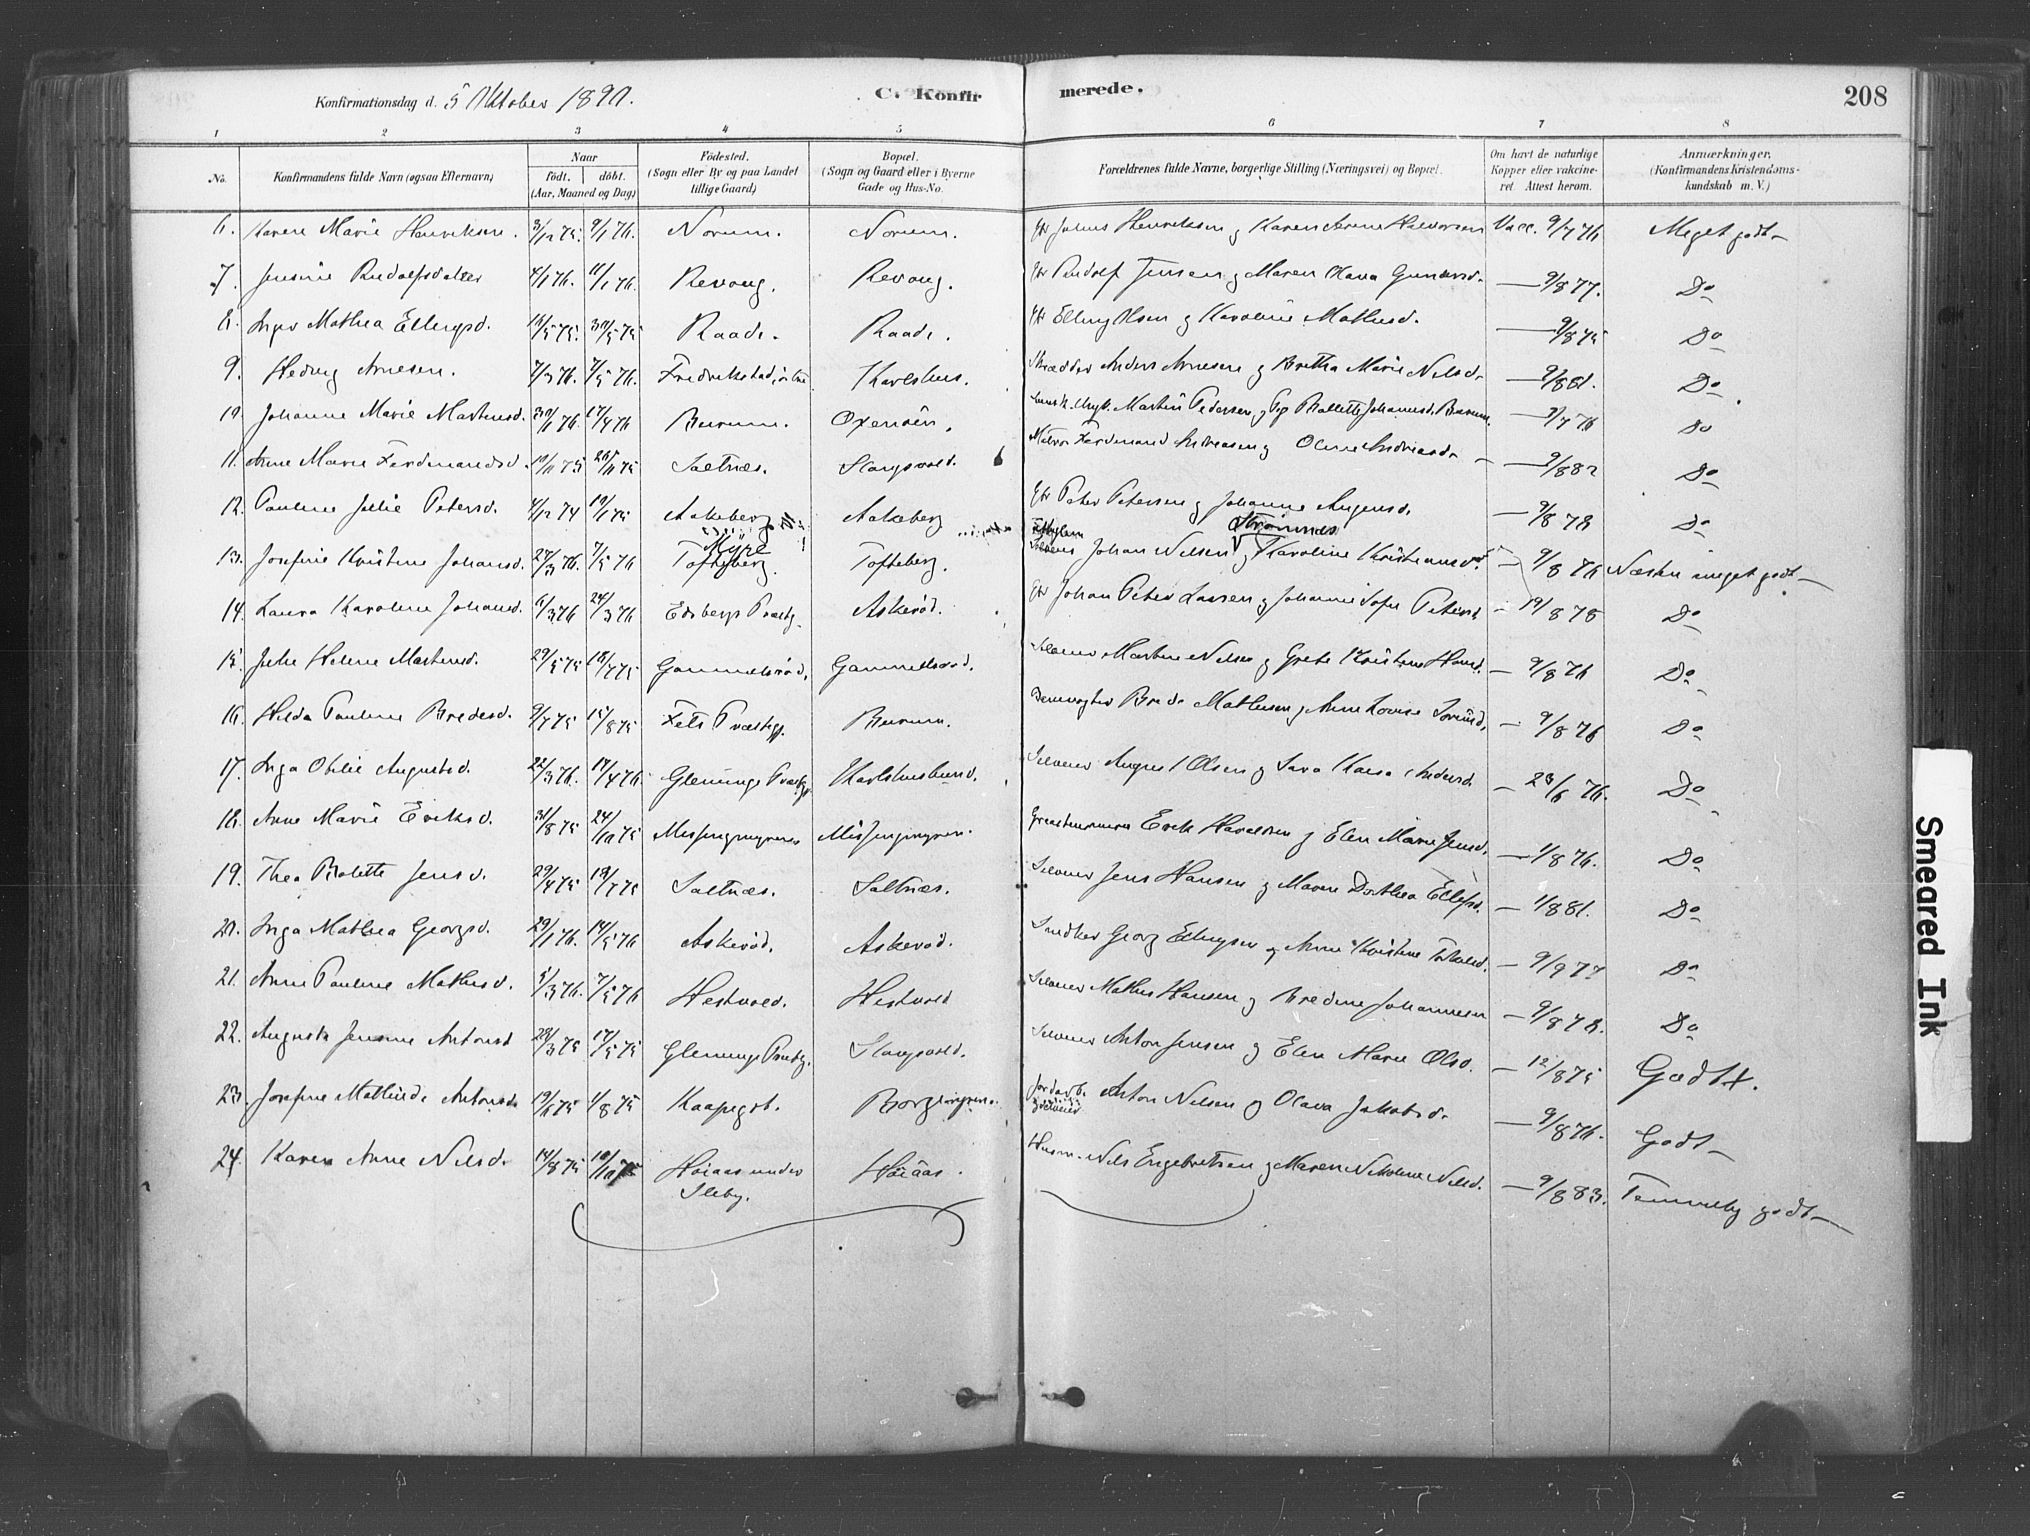 Konfirmationsdag d. 5 Oktober 1890.
C. Konfirmerede.
208
1 2 3 4 5 6 7 8
No.
Konfirmandens fulde Navn (ogsaa Efternavn)
Naar
födt. döbt.
(Aar, Maaned og Dag)
Födested.
(Sogn eller By og paa Landet
tillige Gaard)
Bopæl.
(Sogn og Gaard eller i Byerne
Gade og Hus-No.
Forældrenes fulde Navne, borgerlige Stilling (Næringsvei) og Bopæl.
Om havt de naturlige
Kopper eller vakcine-
ret Attest herom.
Anmærkninger,
(Konfirmandens Kristendoms-
kundskab m. V.)
6. Marie Henriksen. 3/12 75. 9/1 76. Norum. Norum. Julius Henriksen og Karen Vacc. 9/7 76 Meget godt
7. Jensine Rudolfsdatter 4/1 76. 11/1 76. Revoug. Revoug. Rudolf Jensen og Maren Olava Gundersd. — 9/8 77. Do
8. Mathea Ellingsd. 16/5 75. 30/5 75 Raade. Raade. Elling Olsen og Karoline Mathisd. — 9/8 75 Do
9. Hedvig Arnesen. 7/3 76. 7/5 76. Fredrikstad Karlshus. Skrædder Anders Arnesen og Bertha Marie Nilsd. — 9/8 81. Do
10. Johanne Marie Martinsd. 30/1 76. 17/4 76 Burum. Oxenöen. Martin Pedersen Johannesd. Burum. — 9/7 76 Do
11. Anne Marie Ferdinandsd. 10/11 75 26/11 75 Saltnæs. Slangsvold. Ferdinand Andreasen og Oline Andreasd. — 9/8 82 Do
12. Pauline Julie Petersd. 4/12 74 10/1 75 Aakeberg Aakeberg Peter Petersen og Johanne — 9/8 78 Do
13. Josefine Kristine Johansd. 27/3 76. 7/5 76 Myre Tofteberg. Tofteberg. Johan Nilsen og Karoline Kristiansd. Strömnes — 9/8 76 Næsten meget godt
14. Laura Karoline Johansd. 6/3 76 24/3 76 Edsbergs Præstg. Askeröd. Johan Peter Larsen og Johanne Sofie Petersd. — 19/8 78 Do
15. Julie Helene Martinsd. 29/5 75 18/7 75 Gammelsröd. Gammelsröd. Selveier Martin Nilsen og Grete Kristine Hansd. — 9/8 76 Do
16. Hilda Pauline Bredesd. 9/7 75 15/8 75 Fets Præstegj. Burum. Banevogter Brede Mathisen og Anne Lovise — 9/8 76 Do
17. Inga Otilie Augustsd. 22/3 76. 17/4 76 Glemmings Præstg. Karlshusbund. Selveier August Olsen og Sara Kaisa Andersd. — 23/6 76. Do
18. Anne Marie Eriksd. 31/8 75 24/10 75 Missingmyren Missingmyren. Erik Haraldsen og Elen Marie Jensd. — 1/8 76. Do
19. Thea Bolette Jensd. 29/4 75 18/7 75 Saltnæs. Saltnæs. Selveier Jens Hansen og Maren Dorthea Ellefsd. — 1/8 81. Do
20. Inga Mathea Georgsd. 29/1 76. 14/5 76 Askeröd. Askeröd. Snedker Georg Ellingsen og Anne Kristine — 9/9 77 Do
21. Anne Pauline Mathisd. 5/3 76. 7/5 76 Hestvold. Hestvold Selveier Mathis Hansen og Bredine Johannesen — 9/8 78. Do
22. Augusta Jensine Antonsd 28/3 75 17/5 75 Glemminge Præstg. Slangsvold. Selveier Anton Jensen og Elen Marie Olsd. — 12/8 75 Godt.
23. Josefine Mathilde Antonsd. 19/6 75 1/8 75 Kaapegst. Borgemyren. Jordarb. Selveier Anton Nilsen og Olava Jakobsd. — 9/8 76. Godt
24. Karen Anne Nilsd. 14/8 75 10/10 75 Höiaas under Sleby. Höiaas. Husm. Nils Engebretsen og Maren Nikoline Nilsd. — 9/8 83. Temmelig godt
Smeared Ink